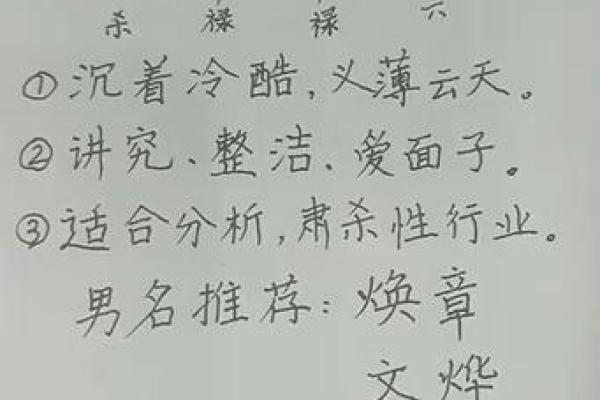 杀 禄 禄 六
①沉着冷酷,义薄云天。
②讲究、整洁、爱面子。
③适合分析,肃杀性行业。
男名推荐:焕章
文烨